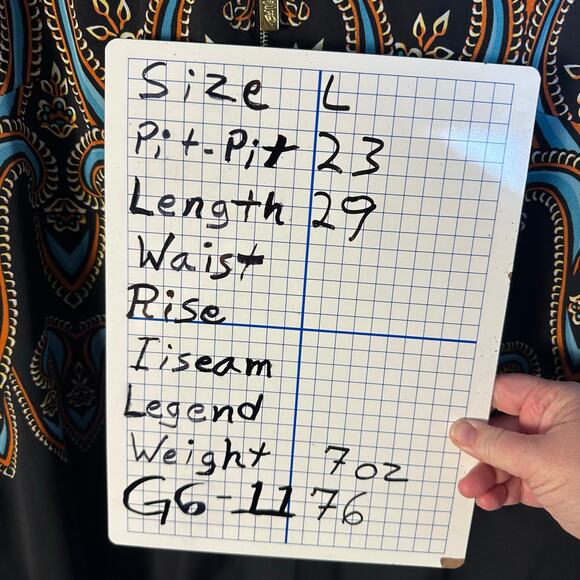 Size L
Pit-Pit 23
Length 29
Waist
Rise
Iiseam
Legend
Weight 7oz
G6-11 76